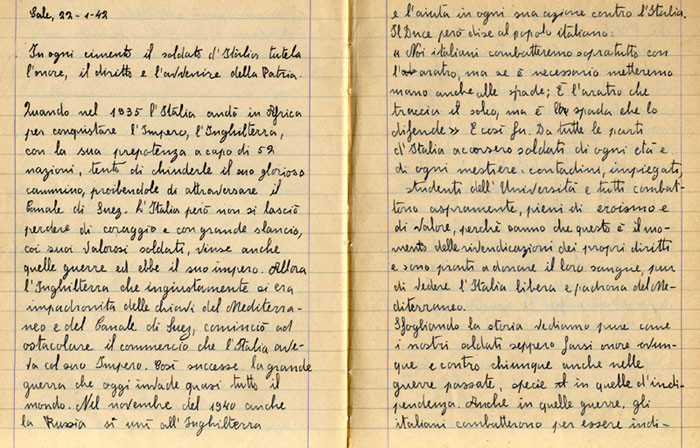 Sale, 22-1-42
In ogni cimento il soldato d'Italia tutela
l'onore, il diritto e l'avvenire della Patria.
Quando nel 1935 l'Italia andò in Africa
per conquistare l'Impero, l'Inghilterra,
con la sua prepotenza a capo di 52
nazioni, tentò di chiuderle il suo glorioso
cammino, proibendole di attraversare il
Canale di Suez. L'Italia però non si lasciò
perdere di coraggio e con grande slancio,
coi suoi valorosi soldati, vinse anche
quelle guerre ed ebbe il suo impero. Allora
l'Inghilterra che ingiustamente si era
impadronita delle chiavi del Mediterra-
neo e del Canale di Suez, cominciò ad
ostacolare il commercio che l'Italia ave-
va col suo Impero. Così successe la grande
guerra che oggi invade quasi tutto il
mondo. Nel novembre del 1940 anche
la Russia si unì all'Inghilterra
e l'aiuta in ogni sua azione contro l'Italia.
Il Duce però dise al popolo italiano:
« Noi italiani combatteremo sopratutto con
l'aratro, ma se è necessario metteremo
mano anche alle spade; È l'aratro che
traccia il solco, ma è la spada che lo
difende » E così fu. Da tutte le parti
d'Italia accorsero soldati di ogni età e
di ogni mestiere: contadini, impiegati,
studenti dell'Università e tutti combat-
tono aspramente, pieni di eroismo e
di valore, perchè sanno che questo è il mo-
mento delle rivendicazioni dei propri diritti
e sono pronti a donare il loro sangue, pur
di vedere l'Italia libera e padrona del Me-
diterraneo.
Sfogliando la storia vediamo pure come
i nostri soldati seppero farsi onore ovun-
que e contro chiunque anche nelle
guerre passate, specie in quelle d'indi-
pendenza. Anche in quelle guerre, gli
italiani combatterono per essere indi-